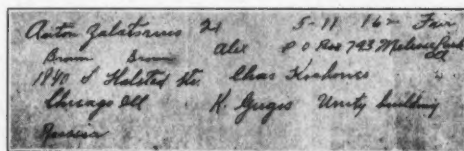 Anton Zalatorius 21 5-11 162 Fair
Brown Brown Alex P O Box 793 Melrose Park Ill
1840 S Halsted St. Chas
Chicago Ill K. Gugis Unity building
Russia